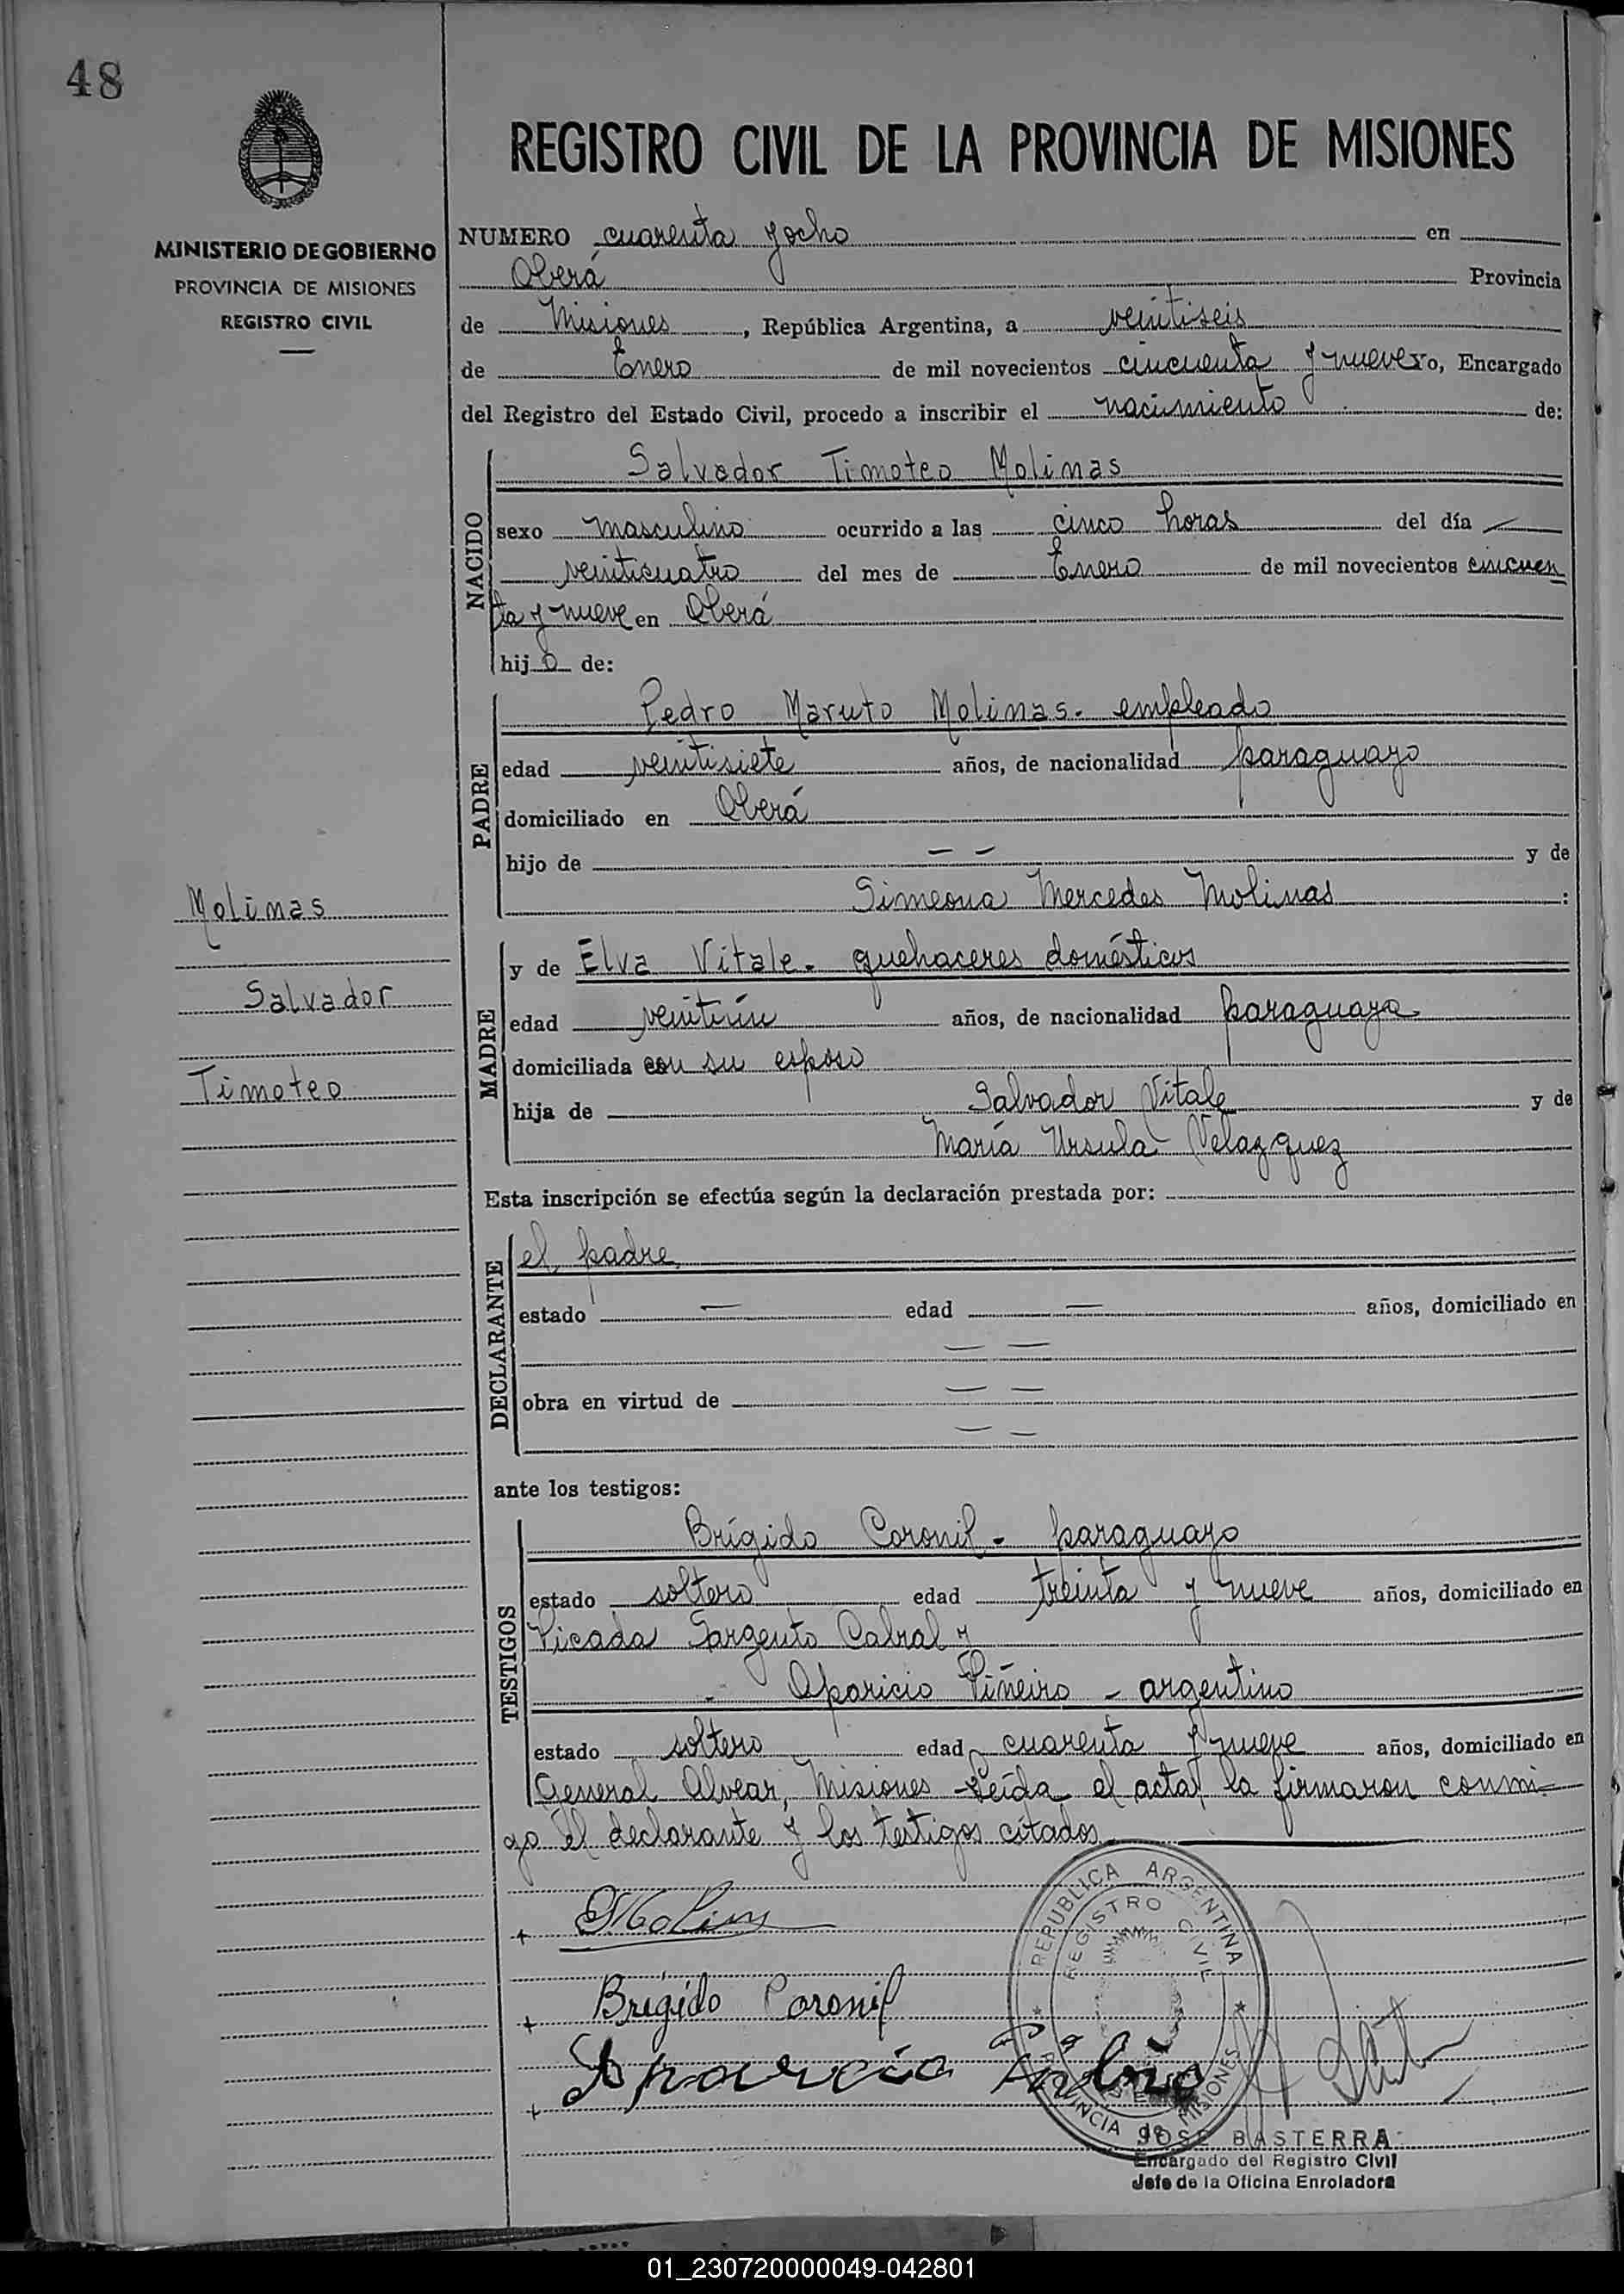 48
REGISTRO CIVIL DE LA PROVINCIA DE MISIONES
MINISTERIO DE GOBIERNO
PROVINCIA DE MISIONES
REGISTRO CIVIL
NUMERO cuarenta y ocho en
Oberá Provincia
de Misiones, República Argentina, a veintiseis
de Enero de mil novecientos cincuenta y nueve yo, Encargado
del Registro del Estado Civil, procedo a inscribir el nacimiento de:
NACIDO
Salvador Timoteo Molinas
sexo masculino ocurrido a las cinco horas del día
veinticuatro del mes de Enero de mil novecientos cincuen
ta y nueve en Oberá
hijo de:
PADRE
Pedro Maruto Molinas. empleado
edad veintisiete años, de nacionalidad paraguayo
domiciliado en Oberá
hijo de — — y de
Simeona Mercedes Molinas :
MADRE
y de Elva Vitale. quehaceres domésticos
edad veintiún años, de nacionalidad paraguaya
domiciliada con su esposo
hija de Salvador Vitale y de
María Ursula Velazquez
Molinas
Salvador
Timoteo
Esta inscripción se efectúa según la declaración prestada por:
DECLARANTE
el padre
estado — edad — años, domiciliado en
— —
obra en virtud de — —
— —
ante los testigos:
TESTIGOS
Brígido Coronil - paraguayo
estado soltero edad treinta y nueve años, domiciliado en
Picada Sargento Cabral y
Aparicio Piñeiro - argentino
estado soltero edad cuarenta y nueve años, domiciliado en
General Alvear, Misiones - Leída el acta, la firmaron conmi-
go el declarante y los testigos citados
Brígido Coronil
Aparicio
REPUBLICA ARGENTINA
REGISTRO CIVIL
PROVINCIA de MISIONES
JOSE BASTERRA
Encargado del Registro Civil
Jefe de la Oficina Enroladora
01_230720000049-042801